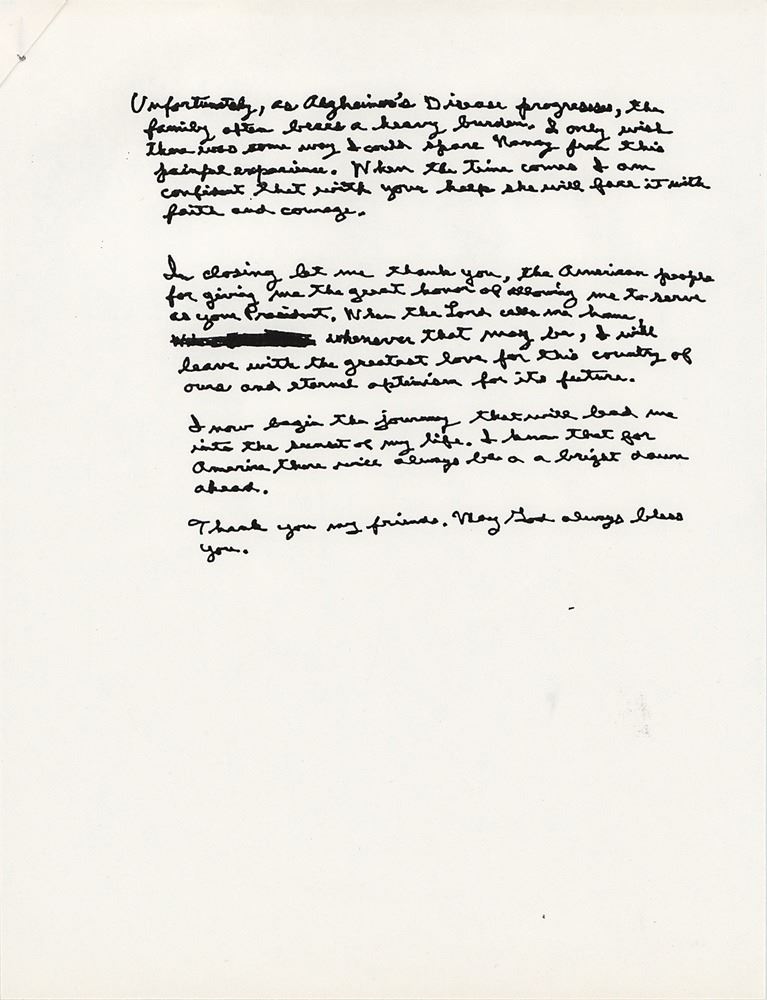 Unfortunately, as Alzheimer's Disease progresses, the
family often bears a heavy burden. I only wish
there was some way I could spare Nancy from this
painful experience. When the time comes I am
confident that with your help she will face it with
faith and courage.
In closing let me thank you, the American people
for giving me the great honor of allowing me to serve
as your President. When the Lord calls me home,
whenever that may be, I will
leave with the greatest love for this country of
ours and eternal optimism for its future.
I now begin the journey that will lead me
into the sunset of my life. I know that for
America there will always be a a bright dawn
ahead.
Thank you my friends. May God always bless
you.